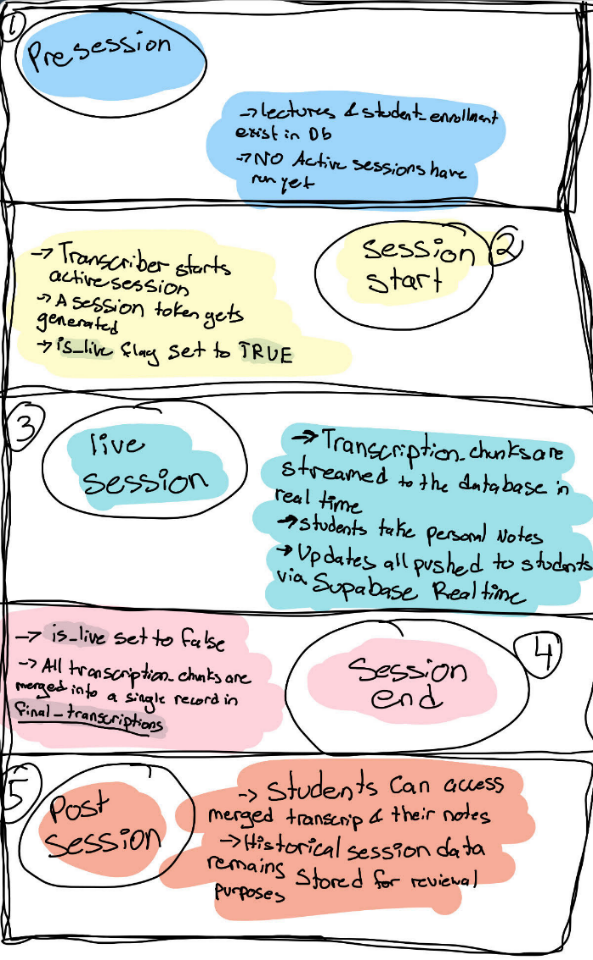 1
Presession
→ lectures & student_enrollment
exist in Db
→ NO Active sessions have
run yet
session 2
start
→ Transcriber starts
active session
→ A session token gets
generated
→ is_live flag set to TRUE
3
live
session
→ Transcription_chunks are
streamed to the database in
real time
→ students take personal Notes
→ Updates all pushed to students
via Supabase Realtime
→ is_live set to false
→ All transcription_chunks are
merged into a single record in
final_transcriptions
4
Session
end
5
Post
session
→ Students Can access
merged transcrip & their notes
→ Historical session data
remains Stored for reviewal
purposes